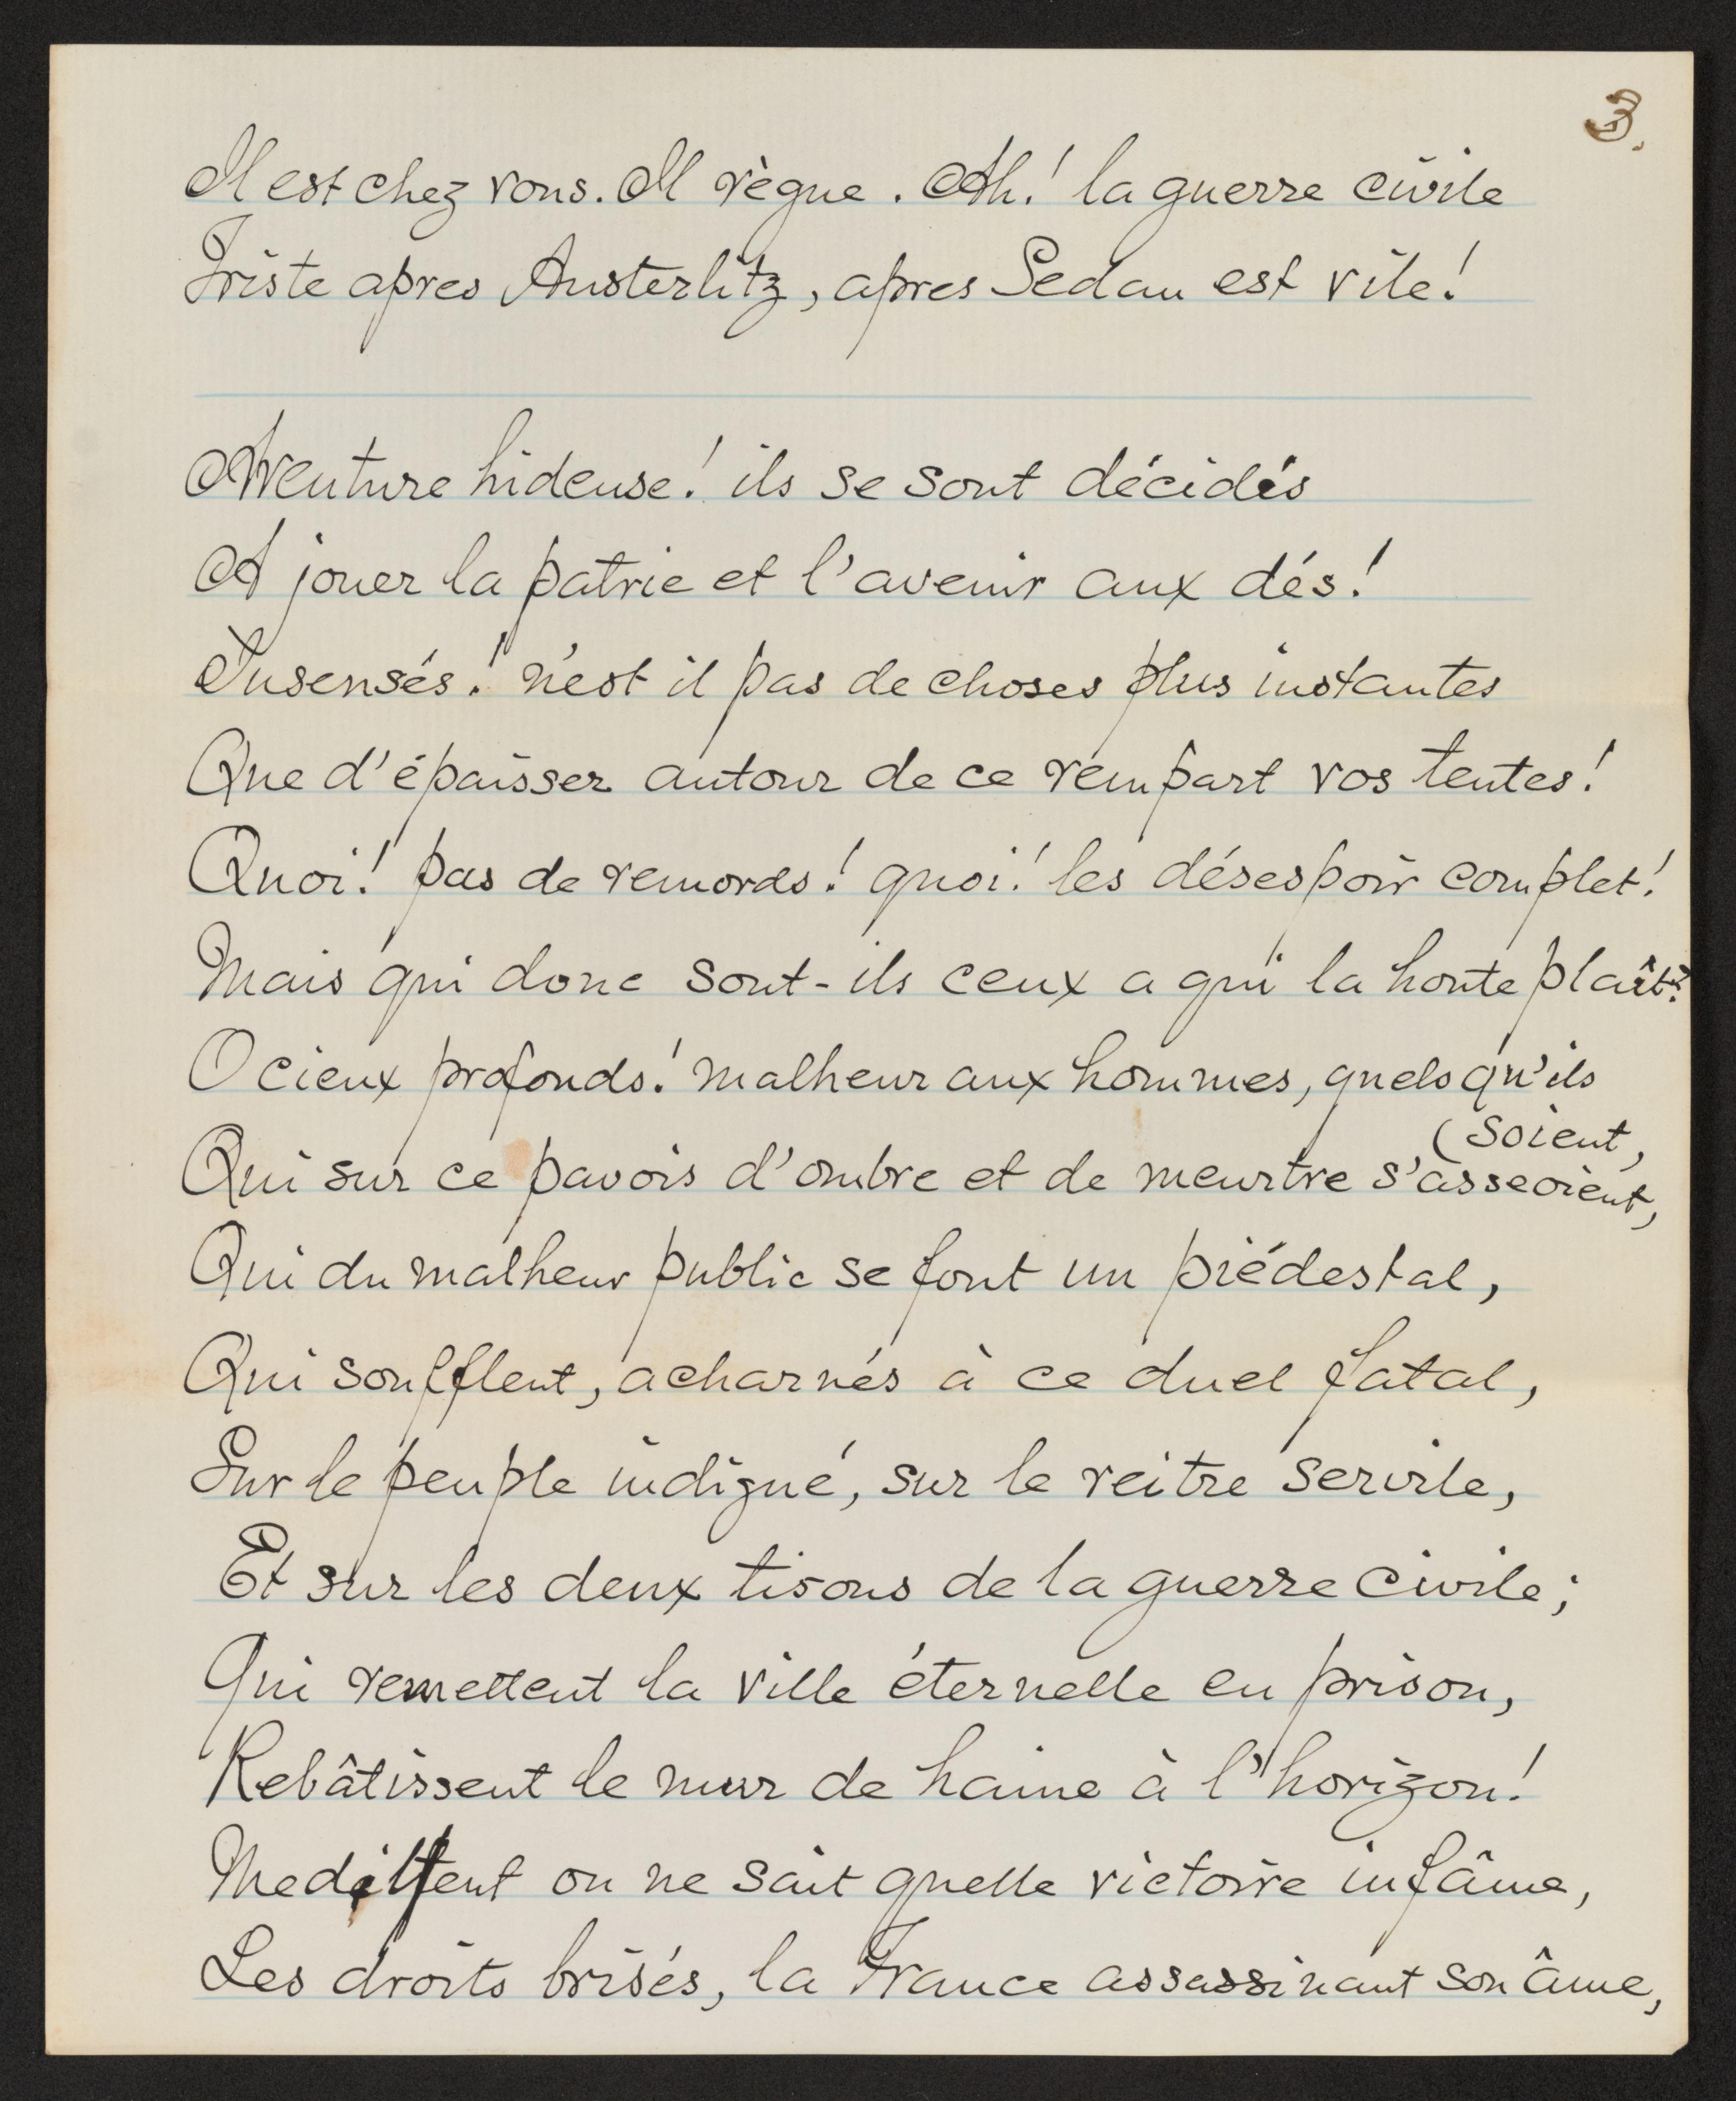 3.
Il est chez vous. Il règne. Ah! la guerre civile
Triste apres Austerlitz, apres Sedan est vile!
Aventure hideuse! ils se sont décidés
A jouer la patrie et l'avenir aux dés!
Insensés! n'est il pas de choses plus instantes
Que d'épaisser autour de ce rempart vos tentes!
Quoi! pas de remords! quoi! les désespoir complet!
Mais qui donc sont-ils ceux a qui la honte plaît?
O cieux profonds! malheur aux hommes, quels qu'ils
(soient,
Qui sur ce pavois d'ombre et de meurtre s'asseoient,
Qui du malheur public se font un piédestal,
Qui soufflent, acharnés à ce duel fatal,
Sur le peuple indigné, sur le reitre servile,
Et sur les deux tisons de la guerre civile;
Qui remettent la ville éternelle en prison,
Rebâtissent le mur de haine à l'horizon!
Meditent on ne sait quelle victoire infâme,
Les droits brisés, la France assassinant son âme,